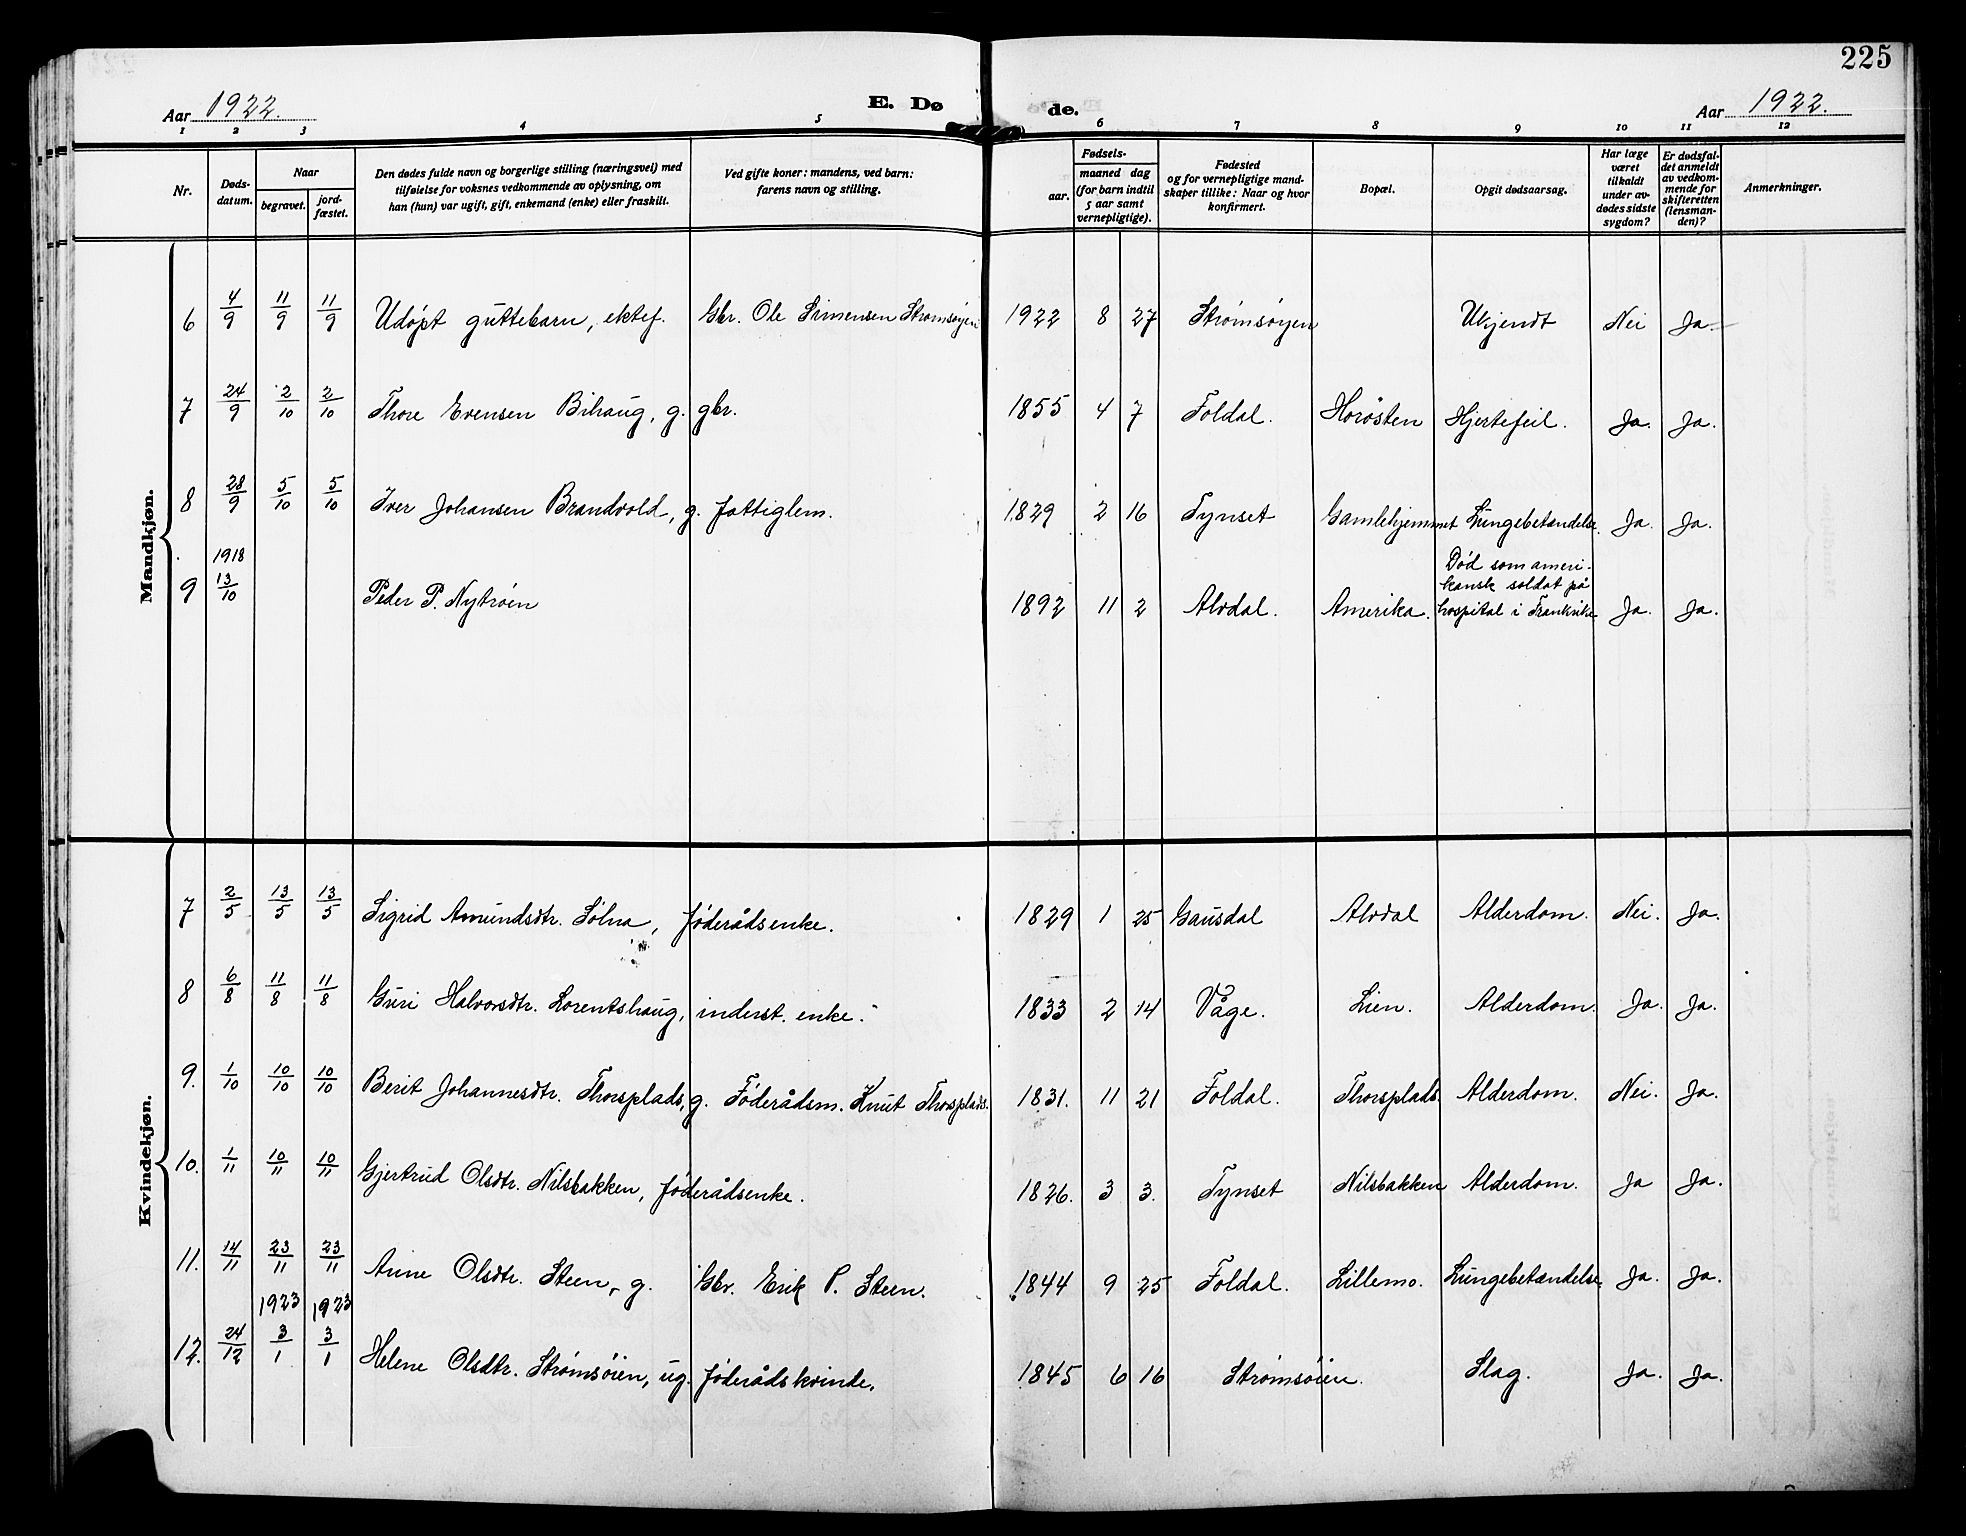 225
Aar 1922. E. Døde. Aar 1922.
1 2 3 4 5 6 7 8 9 10 11 12
Nr.
Døds-
datum.
Naar
begravet.
jord-
fæstet.
Den dødes fulde navn og borgerlige stilling (næringsvei) med
tilføielse for voksnes vedkommende av oplysning, om
han (hun) var ugift, gift, enkemand (enke) eller fraskilt.
Ved gifte koner: mandens, ved barn:
farens navn og stilling.
Fødsels-
aar.
maaned dag
(for barn indtil
5 aar samt
vernepligtige).
Fødested
og for vernepligtige mand-
skaper tillike: Naar og hvor
konfirmert.
Bopæl.
Opgit dødsaarsag.
Har læge
været
tilkaldt
under av-
dødes sidste
sygdom?
Er dødsfal-
det anmeldt
av vedkom-
mende for
skifteretten
(lensman-
den)?
Anmerkninger.
Mandkjøn.
6 4/9 11/9 11/9 Udøpt guttebarn, ektef. Gbr. Ole Simensen Strømsøyen 1922 8 27 Strømsøyen Ukjendt Nei Ja.
7 24/9 2/10 2/10 Thore Evensen Bihaug, g. gbr. 1855 4 7 Foldal. Horøsten Hjertefeil. Ja. Ja.
8 28/9 5/10 5/10 Iver Johansen Brandvold, g. fattiglem. 1829 2 16 Tynset Gamlehjemmet Lungebetændelse. Ja. Ja.
9 1918 13/10 Peder P. Nytrøen 1892 11 2 Alvdal. Amerika. Død som ameri-
kansk soldat på
hospital i Frankrike Ja. Ja.
Kvindekjøn.
7 2/5 13/5 13/5 Sigrid Amundsdtr. Sølna, føderådsenke. 1829 1 25 Gausdal Alvdal Alderdom. Nei. Ja.
8 6/8 11/8 11/8 Guri Halvorsdtr. Lorentshaug, inderst. enke. 1833 2 14 Våge. Lien. Alderdom. Ja. Ja.
9. 1/10 10/10 10/10 Berit Johannesdtr. Thorsplads, g. Føderådsm. Knut Thorsplads. 1831. 11 21 Foldal. Thorsplads. Alderdom. Nei. Ja.
10. 1/11 10/11 10/11 Gjertrud Olsdtr. Nilsbakken, føderådsenke. 1826. 3 3. Tynset Nilsbakken Alderdom. Ja Ja.
11. 14/11 23/11 23/11 Anne Olsdtr. Steen, g. Gbr. Erik P. Steen. 1844 9 25 Foldal. Lillemo. Lungebetændelse. Ja. Ja.
1923 1923
12. 24/12 3/1 3/1 Helene Olsdtr. Strømsøien, ug. føderådskvinde. 1845 6 16 Strømsøien. Slag. Ja. Ja.